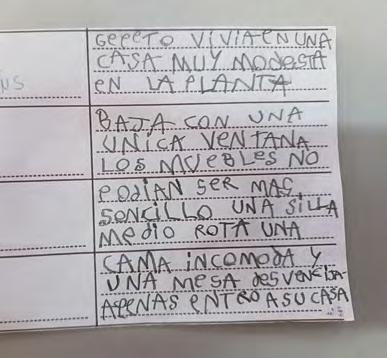 NS
GEPETO VIVIA EN UNA
CASA MUY MODESTA
EN LA PLANTA
BAJA CON UNA
UNICA VENTANA
LOS MUEBLES NO
PODIAN SER MAS
SONCILLO UNA SILLA
MEDIO ROTA UNA
CAMA INCOMODA Y
UNA MESA DESVENCIJA
APENAS ENTRO A SU CASA